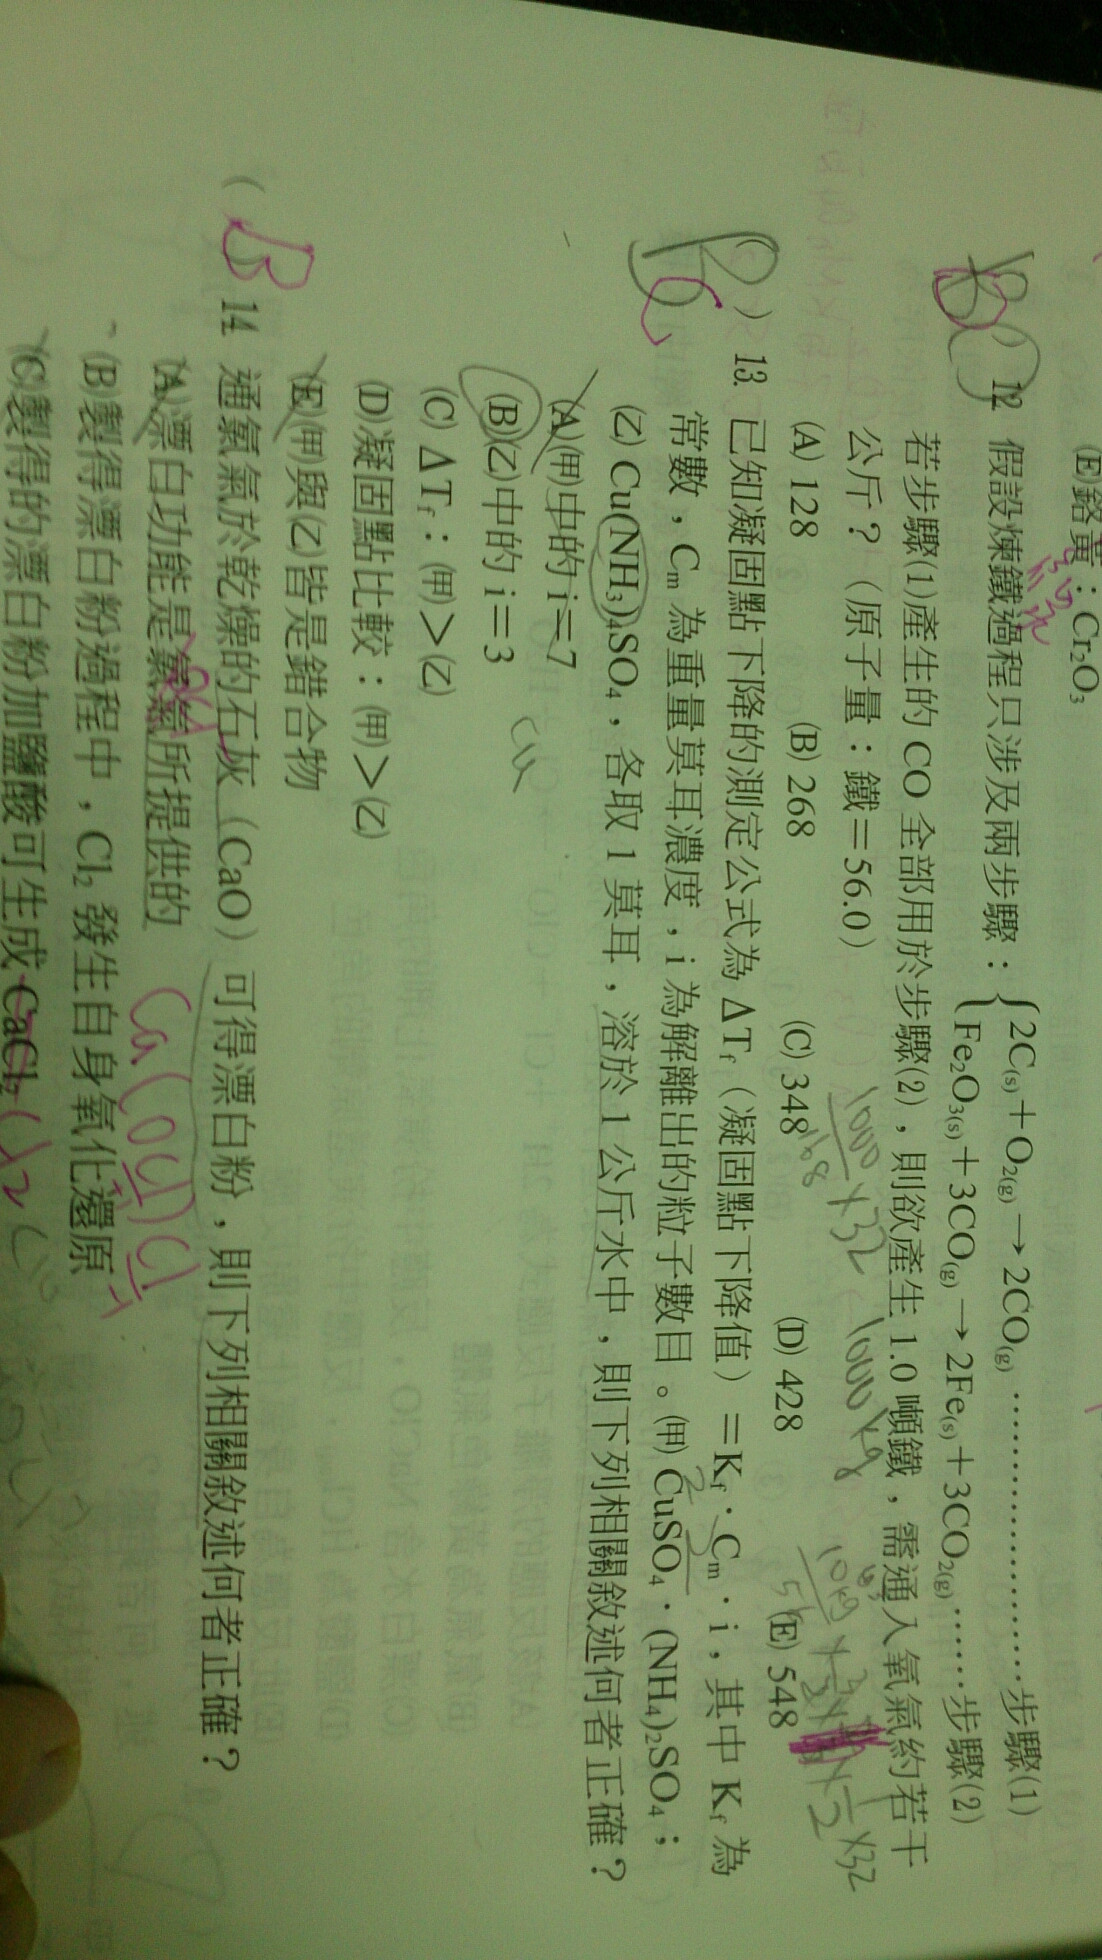 (E)鉻黃：Cr₂O₃
B 12 假設煉鐵過程只涉及兩步驟：{2C(s)＋O₂(g)→2CO(g) ………………步驟(1)
Fe₂O₃(s)＋3CO(g)→2Fe(s)＋3CO₂(g)……步驟(2)
若步驟(1)產生的 CO 全部用於步驟(2)，則欲產生 1.0 噸鐵，需通入氧氣約若干
公斤？（原子量：鐵＝56.0）
(A) 128 (B) 268 (C) 348 (D) 428 (E) 548
C ) 13. 已知凝固點下降的測定公式為 ΔTf（凝固點下降值）＝Kf．Cm．i，其中 Kf 為
常數，Cm 為重量莫耳濃度，i 為解離出的粒子數目。(甲) CuSO₄．(NH₄)₂SO₄；
(乙) Cu(NH₃)₄SO₄，各取 1 莫耳，溶於 1 公斤水中，則下列相關敘述何者正確？
(A)(甲)中的 i＝7
(B)(乙)中的 i＝3
Cu
(C) ΔTf：(甲)＞(乙)
(D)凝固點比較：(甲)＞(乙)
(E)(甲)與(乙)皆是錯合物
( B 14 通氯氣於乾燥的石灰（CaO）可得漂白粉，則下列相關敘述何者正確？
(A)漂白功能是氯氣所提供的
Ca(OCl)Cl
(B)製得漂白粉過程中，Cl₂ 發生自身氧化還原
(C)製得的漂白粉加鹽酸可生成 CaCl₂